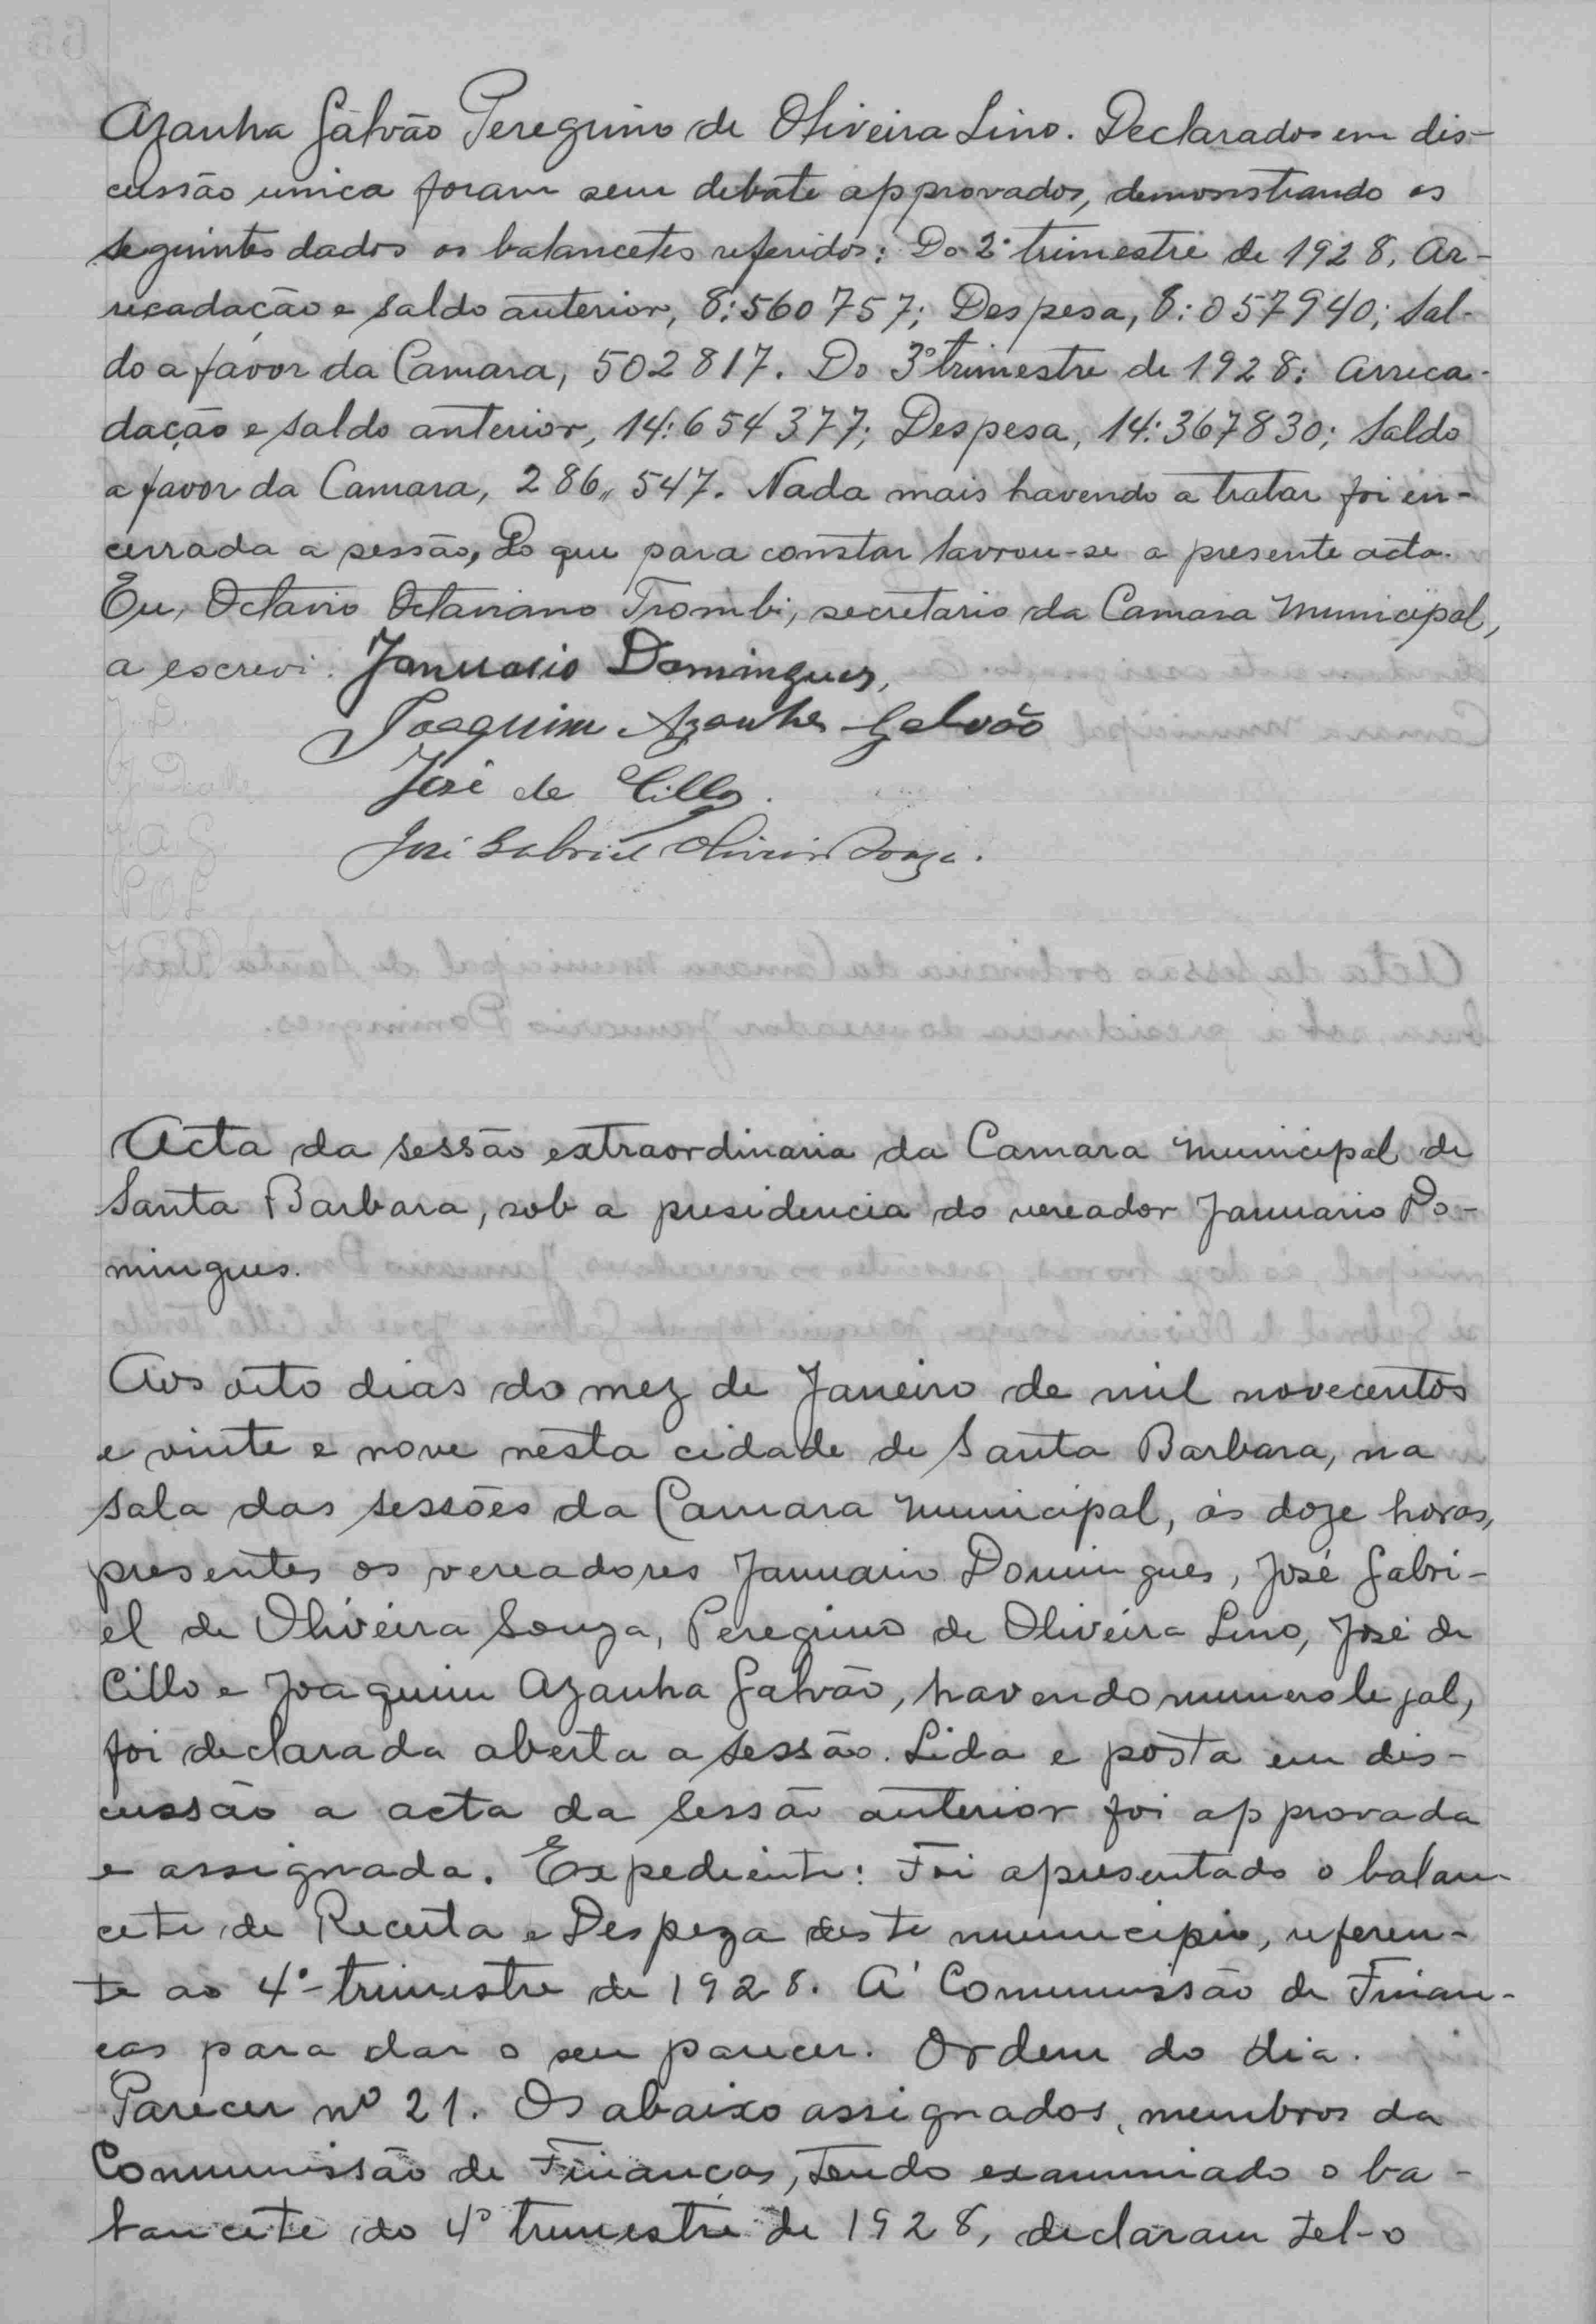 Azanha Galvão Peregrino de Oliveira Lino. Declarados em dis-
cussão unica foram sem debate approvados, demonstrando os
seguintes dados os balancetes referidos: Do 2º trimestre de 1928, Ar-
recadação e saldo anterior, 8:560757; Despesa, 8:057940; Sal-
do a favor da Camara, 502817. Do 3º trimestre de 1928: Arreca-
dação e saldo anterior, 14:654377; Despesa, 14:367830; Saldo
a favor da Camara, 286,,547. Nada mais havendo a tratar foi en-
cerrada a sessão, Do que para constar lavrou-se a presente acta.
Eu, Octavio Octaviano Trombi, secretario da Camara Municipal,
a escrevi. Januario Domingues,
Joaquim Azanha Galvão
José de Cillo.
José Gabriel Oliveira Souza.
J. D.
J. A. G
P O L
Acta da sessão extraordinaria da Camara Municipal de
Santa Barbara, sob a presidencia do vereador Januario Do-
mingues.
Aos oito dias do mez de Janeiro de mil novecentos
e vinte e nove nesta cidade de Santa Barbara, na
sala das sessões da Camara Municipal, ás doze horas,
presentes os vereadores Januario Domingues, José Gabri-
el de Oliveira Souza, Peregrino de Oliveira Lino, José de
Cillo e Joaquim Azanha Galvão, havendo numero legal,
foi declarada aberta a sessão. Lida e posta em dis-
cussão a acta da sessão anterior foi approvada
e assignada. Expediente: Foi apresentado o balan-
cete de Receita e Despeza deste municipio, referen-
te ao 4º trimestre de 1928. A' Commissão de Finan-
ças para dar o seu parecer. Ordem do dia.
Parecer nº 21. Os abaixo assignados, membros da
Commissão de Finanças, tendo examinado o ba-
lancete do 4º trimestre de 1928, declaram tel-o